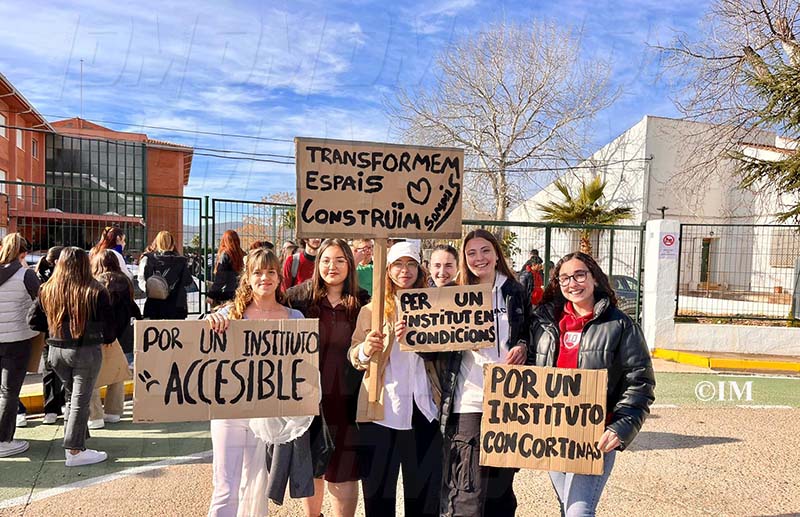 TRANSFORMEM
ESPAIS
CONSTRUÏM SOMNIS
POR UN INSTITUTO
ACCESIBLE
PER UN
INSTITUT EN
CONDICIONS
POR UN
INSTITUTO
CON CORTINAS
©IM